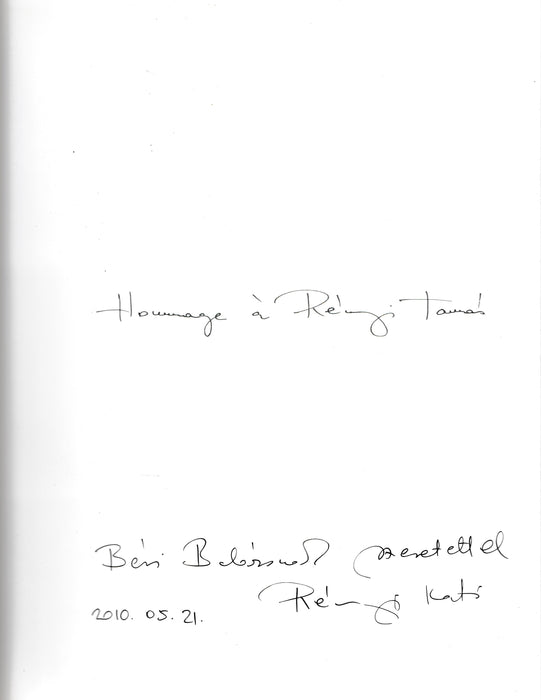 Hommage à Rényi Tamás
Béri Balázsnak szeretettel
Rényi Kati
2010. 05. 21.